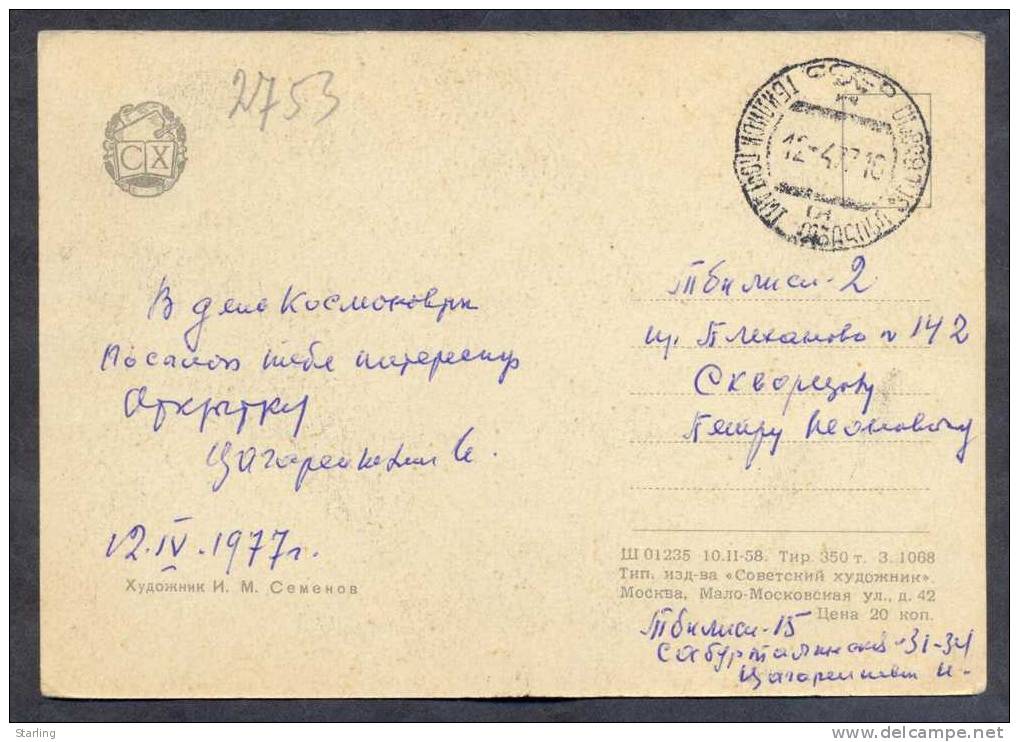 2753
СХ
12-4.77 18
В день Космонавтики
Посылаю тебе интересную
Открытку
12.IV.1977г.
Художник И. М. Семенов
Тбилиси-2
пр. Плеханова № 142
Скворцову
Петру Леоновичу
Ш 01235 10.II-58. Тир. 350 т. З. 1068
Тип. изд-ва «Советский художник».
Москва, Мало-Московская ул., д. 42
Цена 20 коп.
Тбилиси-15
Сабурталинская 31-34
Starling
delcampe.net